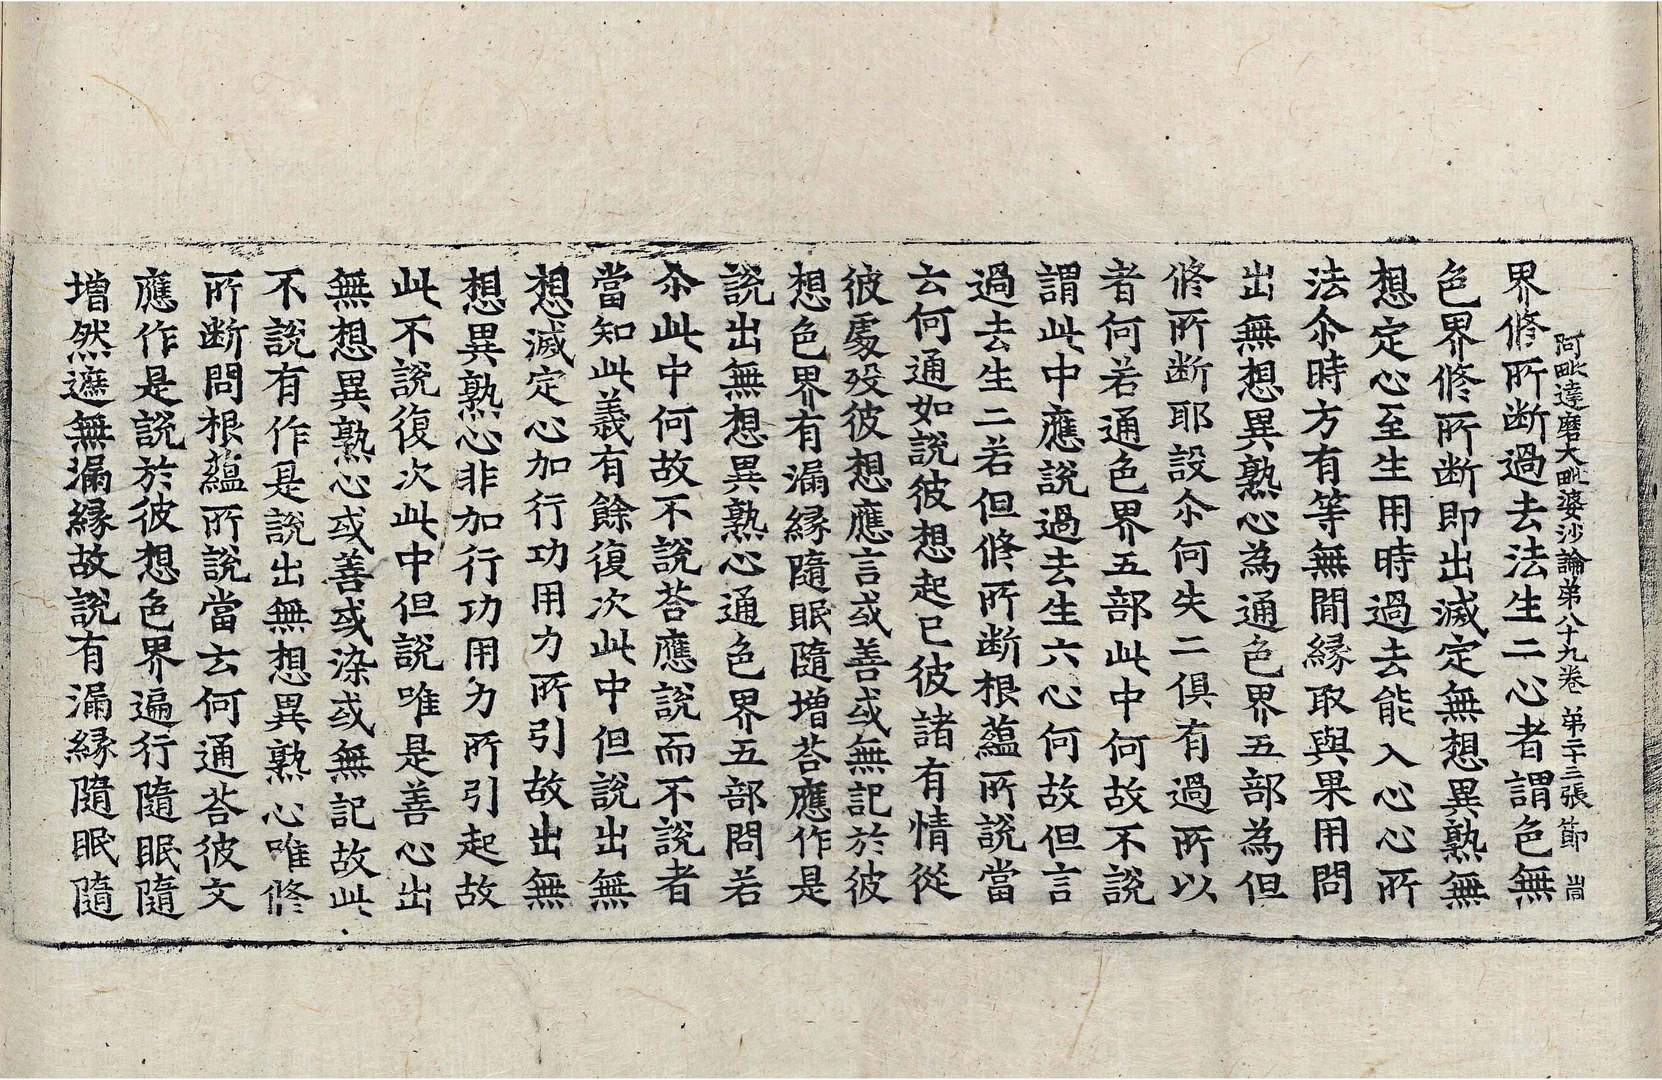 阿毗達磨大毗婆沙論第八十九卷 第二十三張 節 岢
界修所断過去法生二心者謂色無
色界修所断即出滅定無想異熟無
想定心至生用時過去能入心心所
法尒時方有等無間縁取與果用問
出無想異熟心為通色界五部為但
修所断耶設尒何失二俱有過所以
者何若通色界五部此中何故不說
謂此中應說過去生六心何故但言
過去生二若但修所断根蘊所說當
云何通如說彼想起已彼諸有情從
彼處歿彼想應言或善或無記於彼
想色界有漏縁隨眠隨增荅應作是
說出無想異熟心通色界五部問若
尒此中何故不說荅應說而不說者
當知此義有餘復次此中但說出無
想滅定心加行功用力所引故出無
想異熟心非加行功用力所引起故
此不說復次此中但說唯是善心出
無想異熟心或善或染或無記故此
不說有作是說出無想異熟心唯修
所断問根蘊所說當云何通荅彼文
應作是說於彼想色界遍行隨眠隨
增然遮無漏縁故說有漏縁隨眠隨